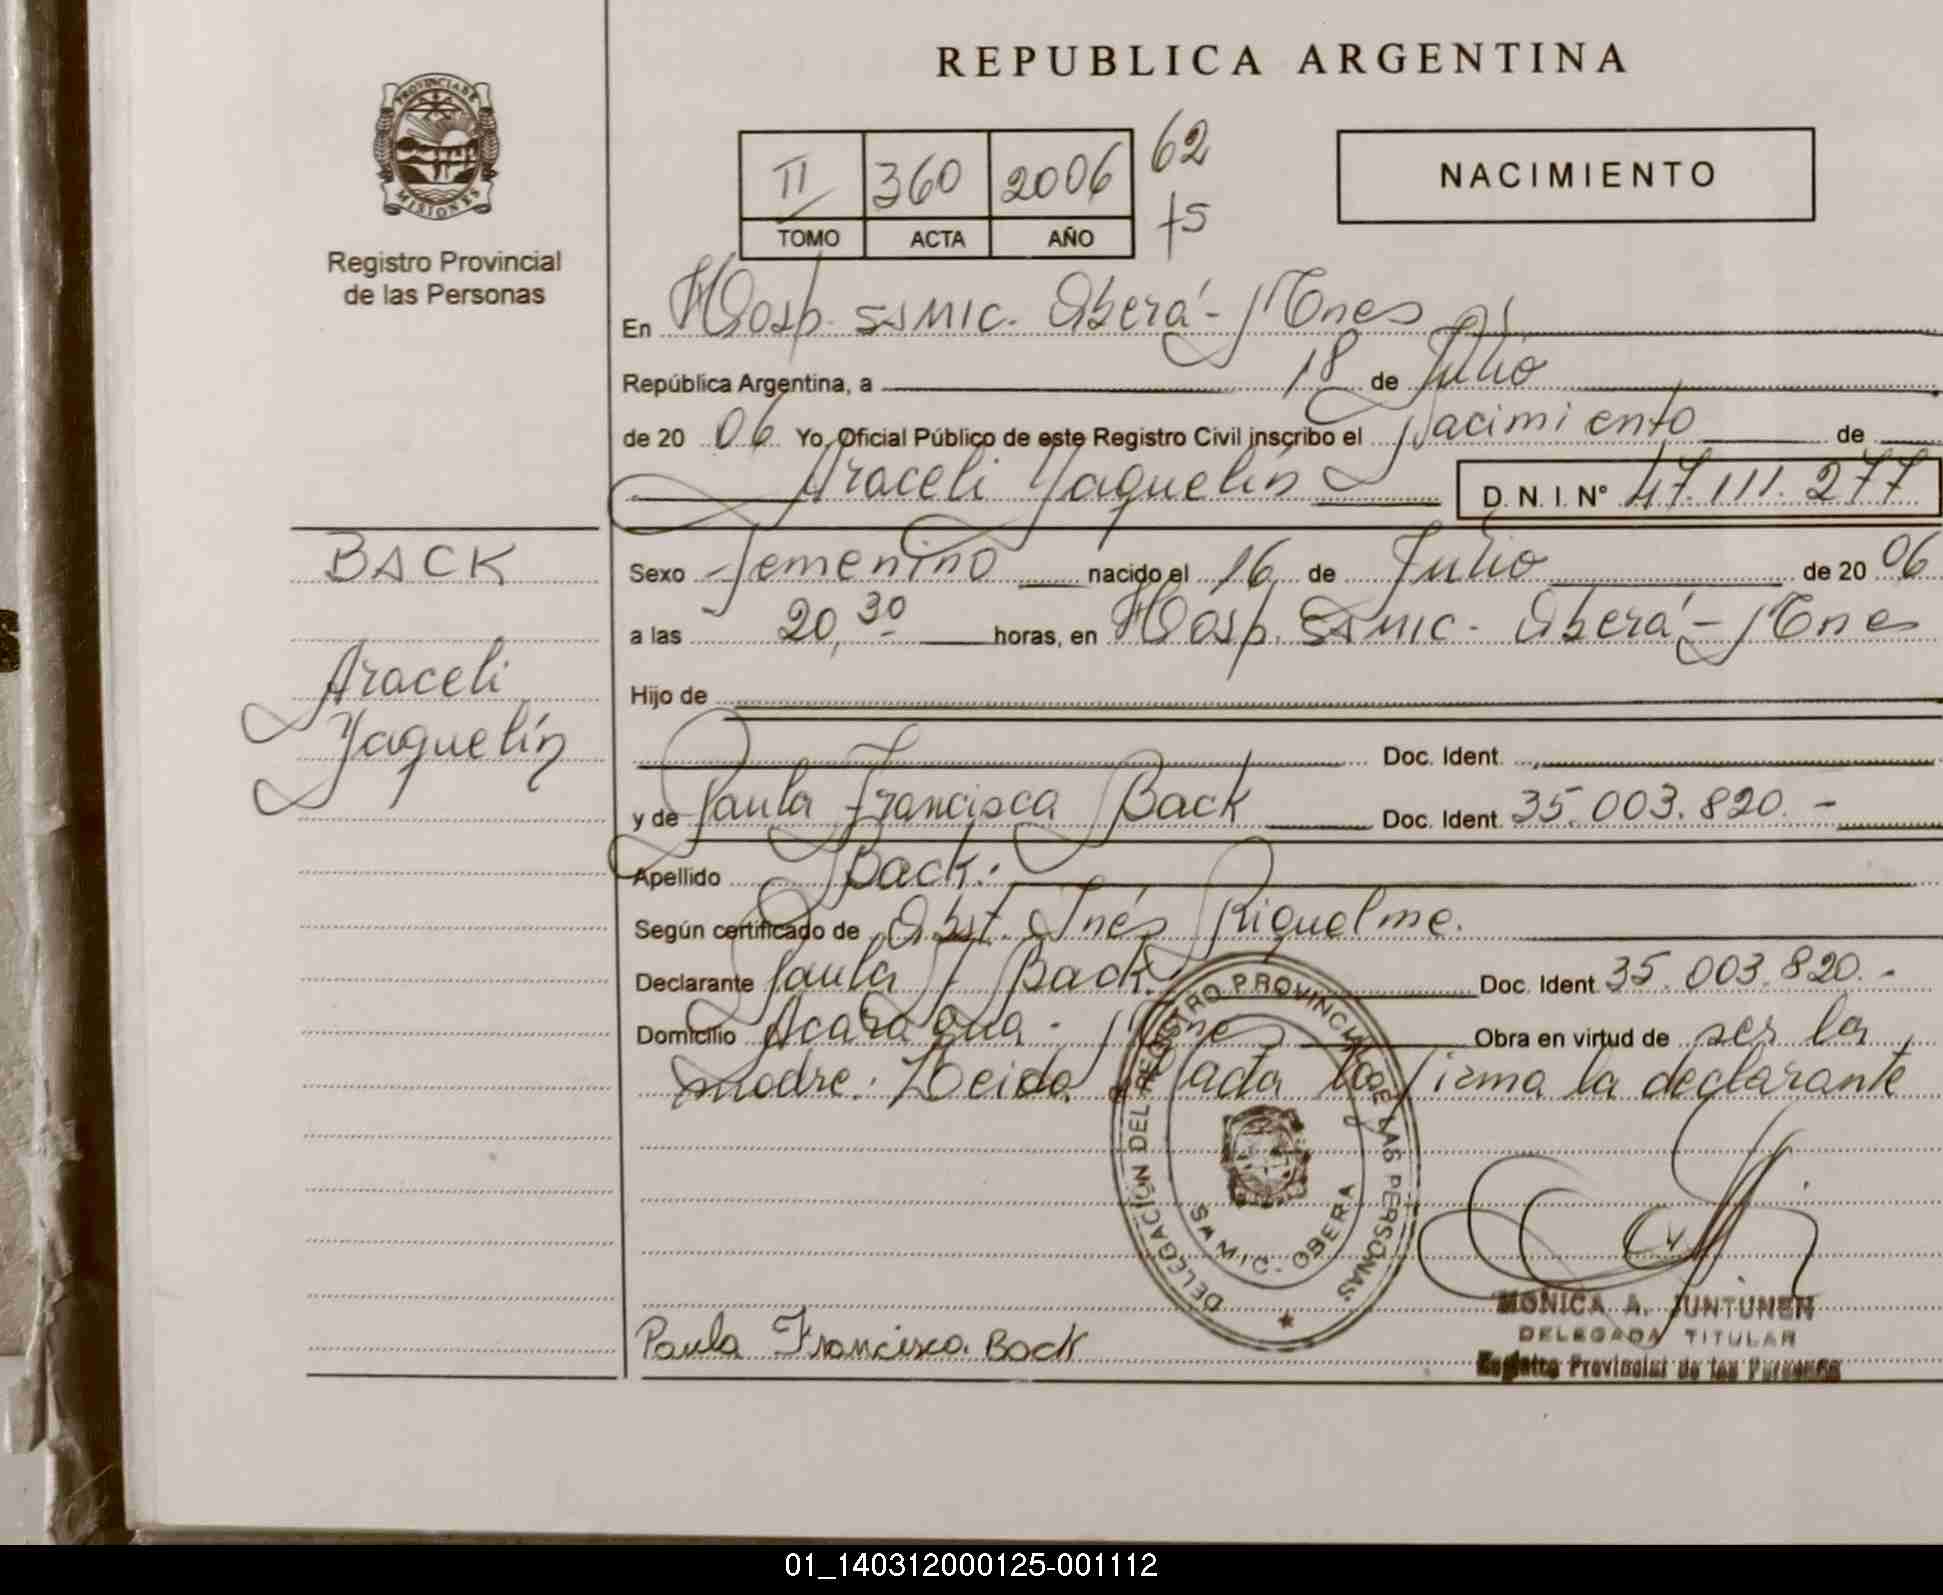 REPUBLICA ARGENTINA
PROVINCIA DE
MISIONES
Registro Provincial
de las Personas
II 360 2006 62
TOMO ACTA AÑO fs
NACIMIENTO
En Hosp. SAMIC. Oberá - Mnes
República Argentina, a 18 de Julio
de 20 06 Yo, Oficial Público de este Registro Civil inscribo el Nacimiento de
Araceli Yaquelín D. N. I. N° 47.111.277
BACK
Araceli
Yaquelín
Sexo femenino nacido el 16 de Julio de 20 06
a las 20,30 horas, en Hosp. SAMIC. Oberá - Mnes
Hijo de
Doc. Ident.
y de Paula Francisca Back Doc. Ident. 35.003.820.-
Apellido Back.
Según certificado de Obst. Inés Riquelme.
Declarante Paula F Back. Doc. Ident. 35.003.820.-
Domicilio Acaragua. Mnes Obra en virtud de ser la
madre. Leida la firma la declarante
DELEGACIÓN DEL REGISTRO PROVINCIAL DE LAS PERSONAS
SAMIC - OBERA
Paula Francisca Back
MONICA A. JUNTUNEN
DELEGADA TITULAR
Registro Provincial de las Personas
01_140312000125-001112